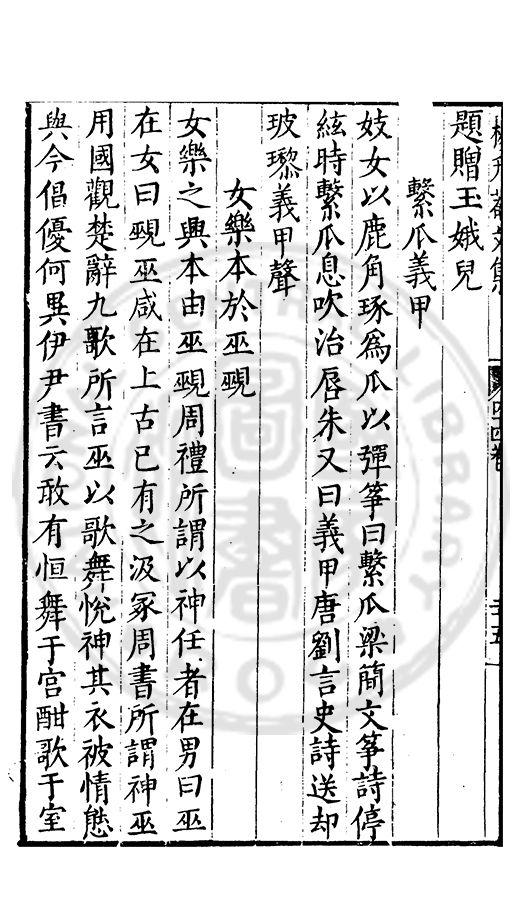 題贈玉娥兒
繫瓜義甲
妓女以鹿角琢爲瓜以彈筝曰繫瓜梁簡文筝詩停
絃時繫瓜息吹治唇朱又曰義甲唐劉言史詩送却
玻瓈義甲聲
女樂本於巫覡
女樂之興本由巫覡周禮所謂以神任者在男曰巫
在女曰覡巫咸在上古已有之汲冢周書所謂神巫
用國觀楚辭九歌所言巫以歌舞悅神其衣被情態
與今倡優何異伊尹書云敢有恒舞于宫酣歌于室